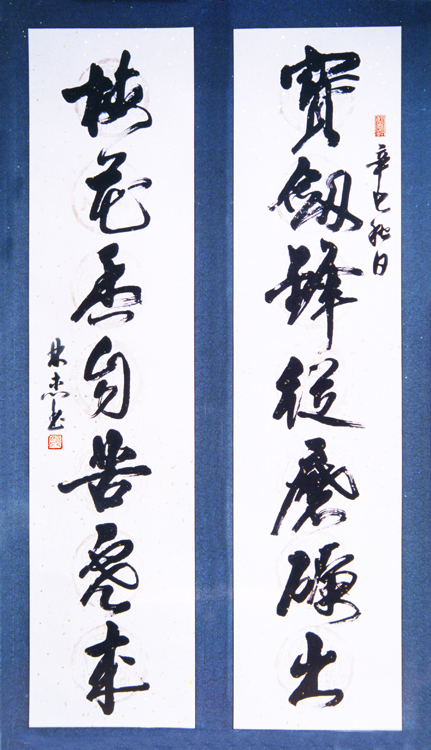 寶劒鋒從磨礪出
辛巳秋日
梅花香自苦處來
林杰书